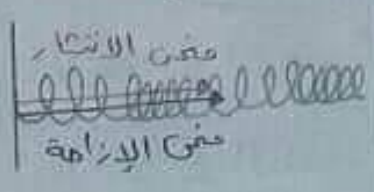 منحى الانتشار
منحى الإزاحة